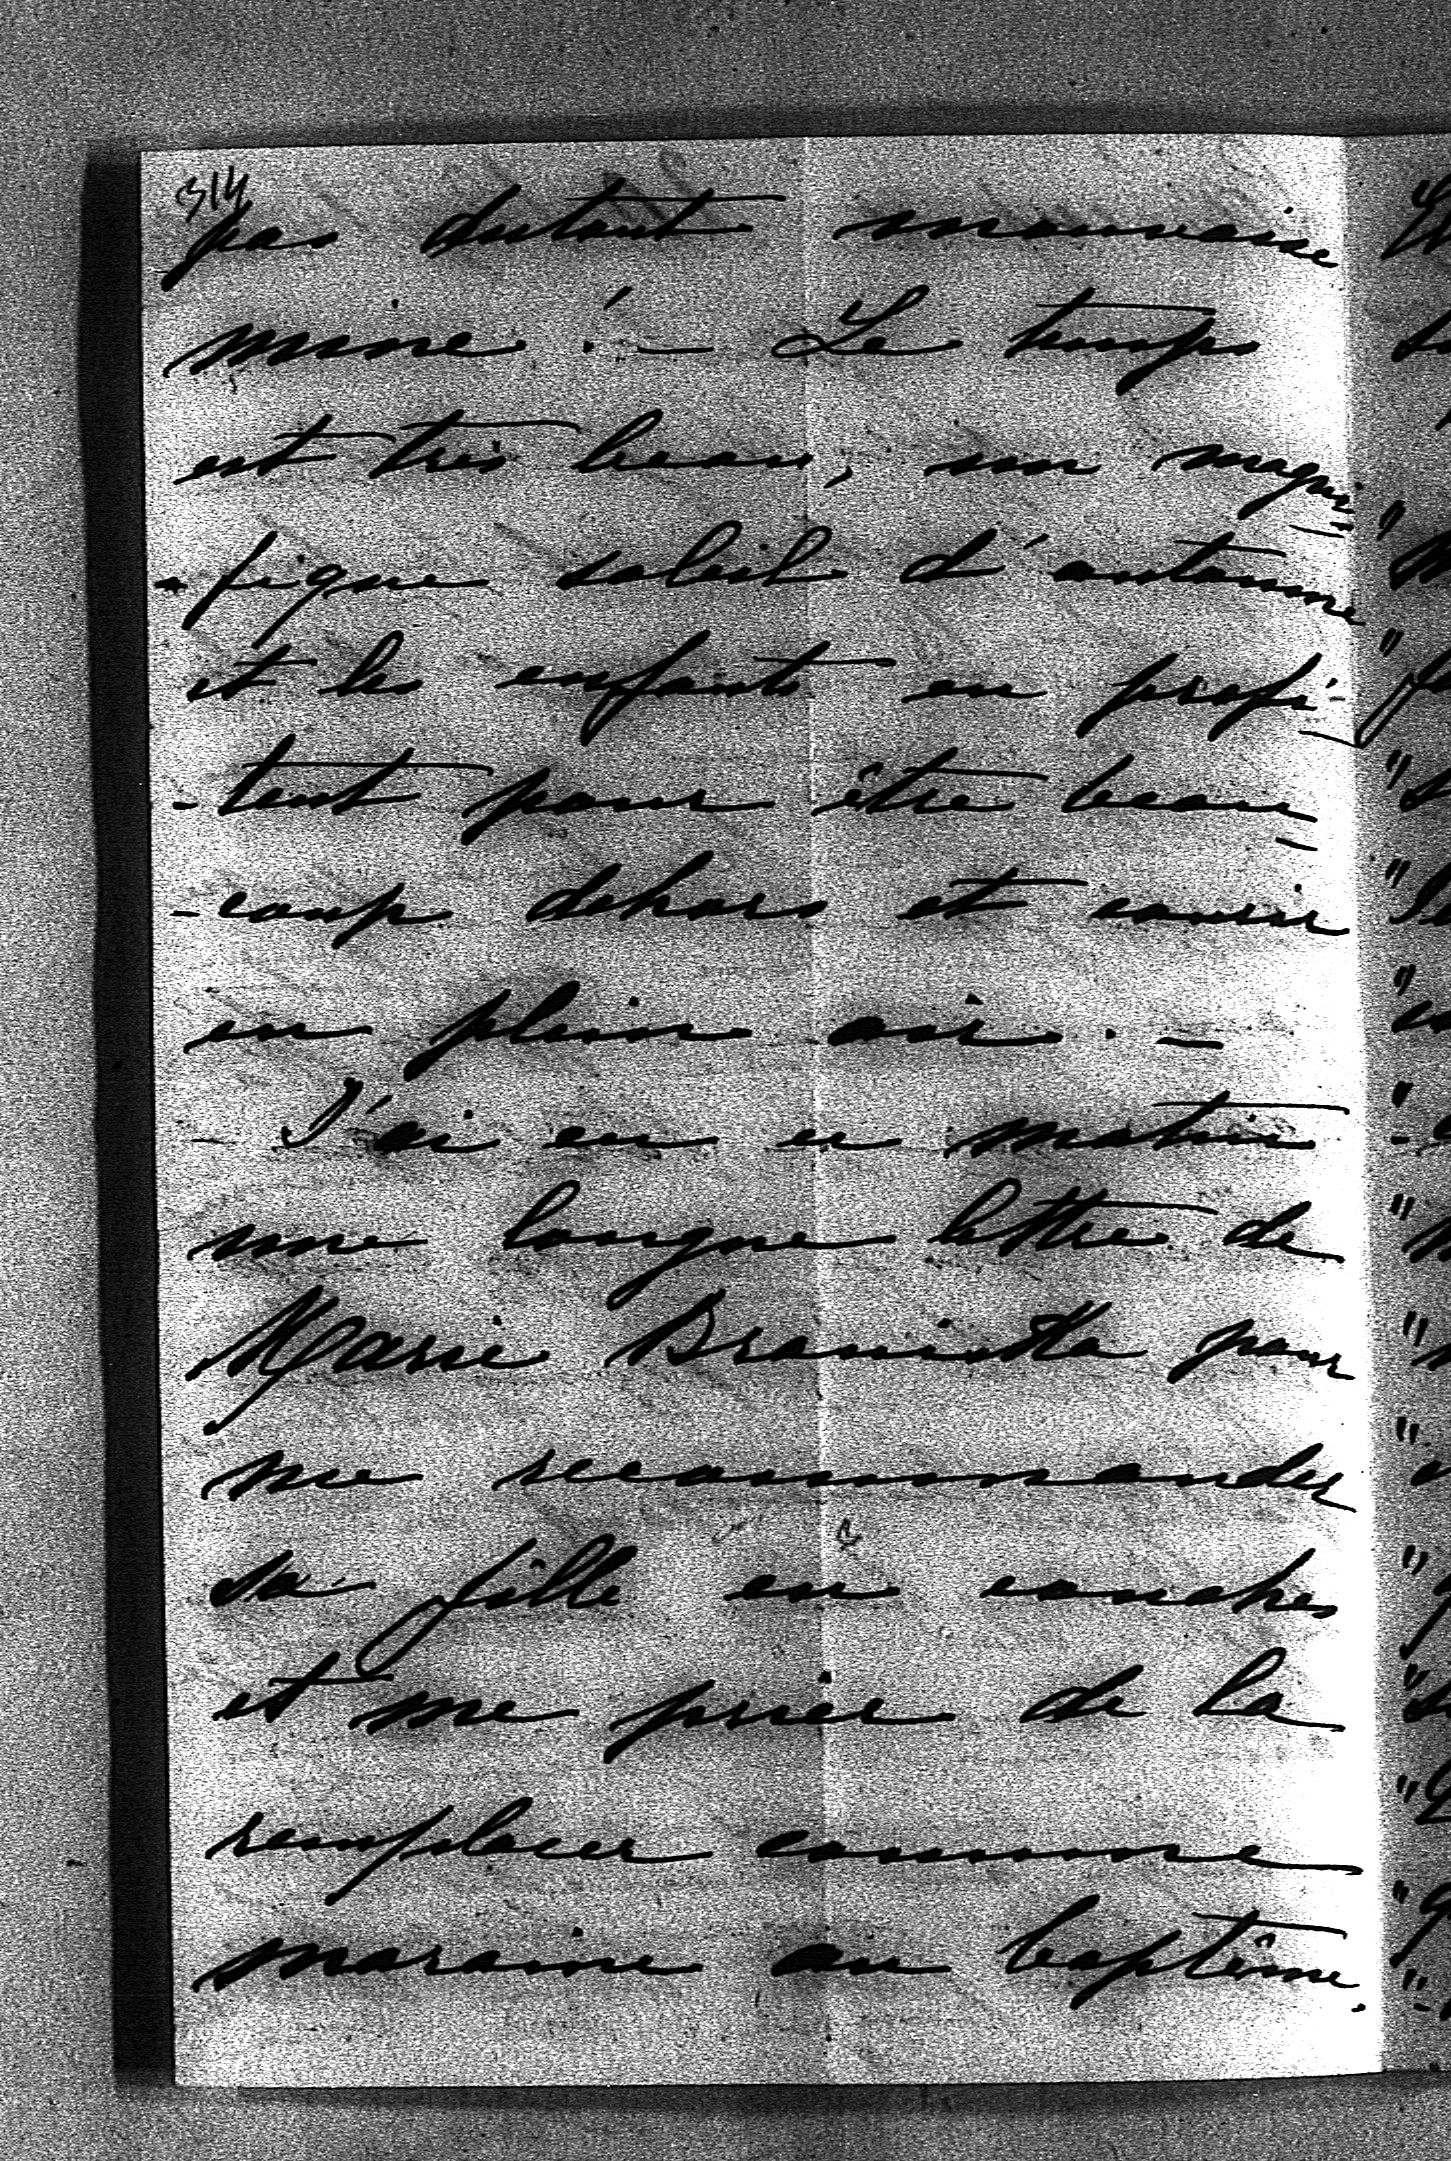 314
pas du tout mauvaise
mine ! — Le temps
est très beau, un magni-
-fique soleil d'automne
et les enfants en profi-
-tent pour être beau-
-coup dehors et courir
en plein air. —
J'ai eu ce matin
une longue lettre de
Marie Branicka pour
me recommander
sa fille en couches
et me prier de la
remplacer comme
marraine au baptême.